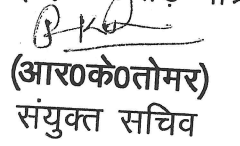 (आर0के0तोमर)
संयुक्त सचिव